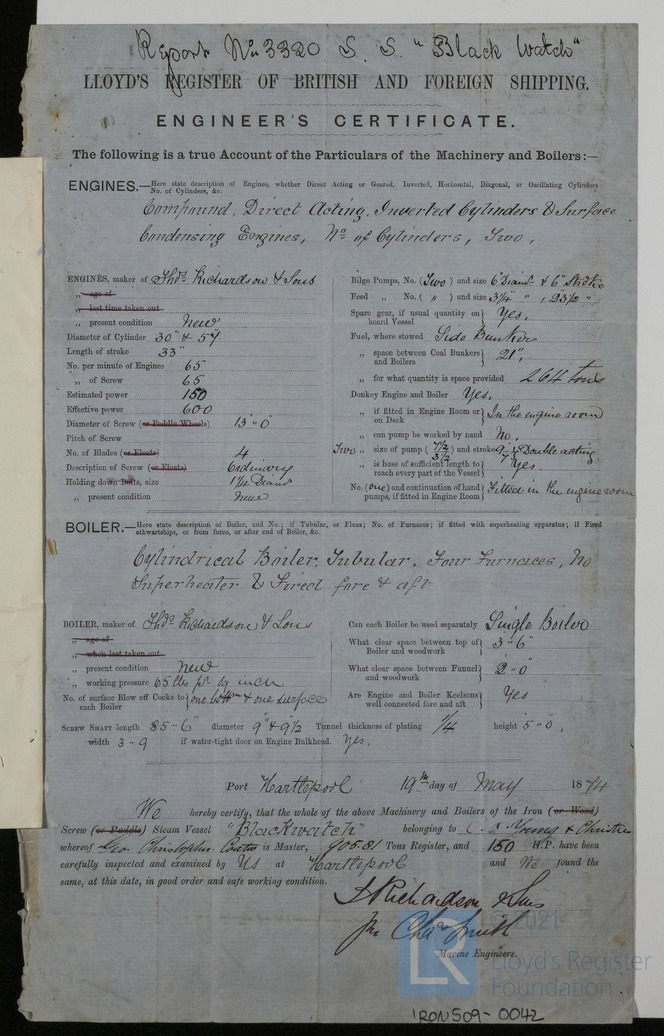 Report No 3320 S. S. "Black Watch"
LLOYD'S REGISTER OF BRITISH AND FOREIGN SHIPPING.
ENGINEER'S CERTIFICATE.
The following is a true Account of the Particulars of the Machinery and Boilers:—
ENGINES.—Here state description of Engines, whether Direct Acting or Geared, Inverted, Horizontal, Diagonal, or Oscillating Cylinders
No. of Cylinders, &c.
Compound, Direct Acting, Inverted Cylinders & Surface
Condensing Engines, No of Cylinders, Two.
ENGINES, maker of Thos. Richardson & Sons
„ age of
„ last time taken out
„ present condition New
Diameter of Cylinder 30" & 57"
Length of stroke 33"
No. per minute of Engines 65
„ of Screw 65
Estimated power 150
Effective power 600
Diameter of Screw (or Paddle Wheels) 13"0"
Pitch of Screw
No. of Blades (or Floats) 4
Description of Screw (or Floats) Ordinary
Holding down Bolts, size 1¼ Diamr
„ present condition New
Bilge Pumps, No. (Two) and size 6" Diamr & 6" Stroke
Feed „ No. ( „ ) and size 3¼ " , 23½ "
Spare gear, if usual quantity on board Vessel } Yes.
Fuel, where stowed Side Bunkers
„ space between Coal Bunkers and Boilers } 21".
„ for what quantity is space provided 264 tons
Donkey Engine and Boiler Yes.
„ if fitted in Engine Room or on Deck } In the engine room
„ can pump be worked by hand No.
Two „ size of pump ( 7½ 3½ ) and stroke 9 & 7 Double acting
„ is hose of sufficient length to reach every part of the Vessel } Yes
No. (one) and continuation of hand pumps, if fitted in Engine Room } Fitted in the engine room
BOILER.—Here state description of Boiler, and No.; if Tubular, or Flues; No. of Furnaces; if fitted with superheating apparatus; if Fired
athwartships, or from force, or after end of Boiler, &c.
Cylindrical Boiler, Tubular, Four Furnaces, No
Superheater & Fired fore & aft
BOILER, maker of Thos. Richardson & Sons
„ age of
„ when last taken out
„ present condition New
„ working pressure 65 lbs pr. sq inch
No. of surface Blow off Cocks to each Boiler } one bottm & one surface
Can each Boiler be used separately Single Boiler
What clear space between top of Boiler and woodwork } 3"6"
What clear space between Funnel and woodwork } 2"0"
Are Engine and Boiler Keelsons well connected fore and aft } Yes
SCREW SHAFT length 85"6" diameter 9" & 9½ Tunnel thickness of plating ¼ height 5"0".
width 3"9 if water-tight door on Engine Bulkhead. Yes.
Port Hartlepool 19th day of May 1874
We hereby certify, that the whole of the above Machinery and Boilers of the Iron (or Wood)
Screw (or Paddle) Steam Vessel "Blackwatch" belonging to Young & Christie
whereof Geo. Christopher is Master, 905.81 Tons Register, and 150 H.P. have been
carefully inspected and examined by Us at Hartlepool and We found the
same, at this date, in good order and safe working condition.
T Richardson & Sons
Chas Smith
Marine Engineers.
© 2021
LR
Lloyd's Register
Foundation
IRON509-0042